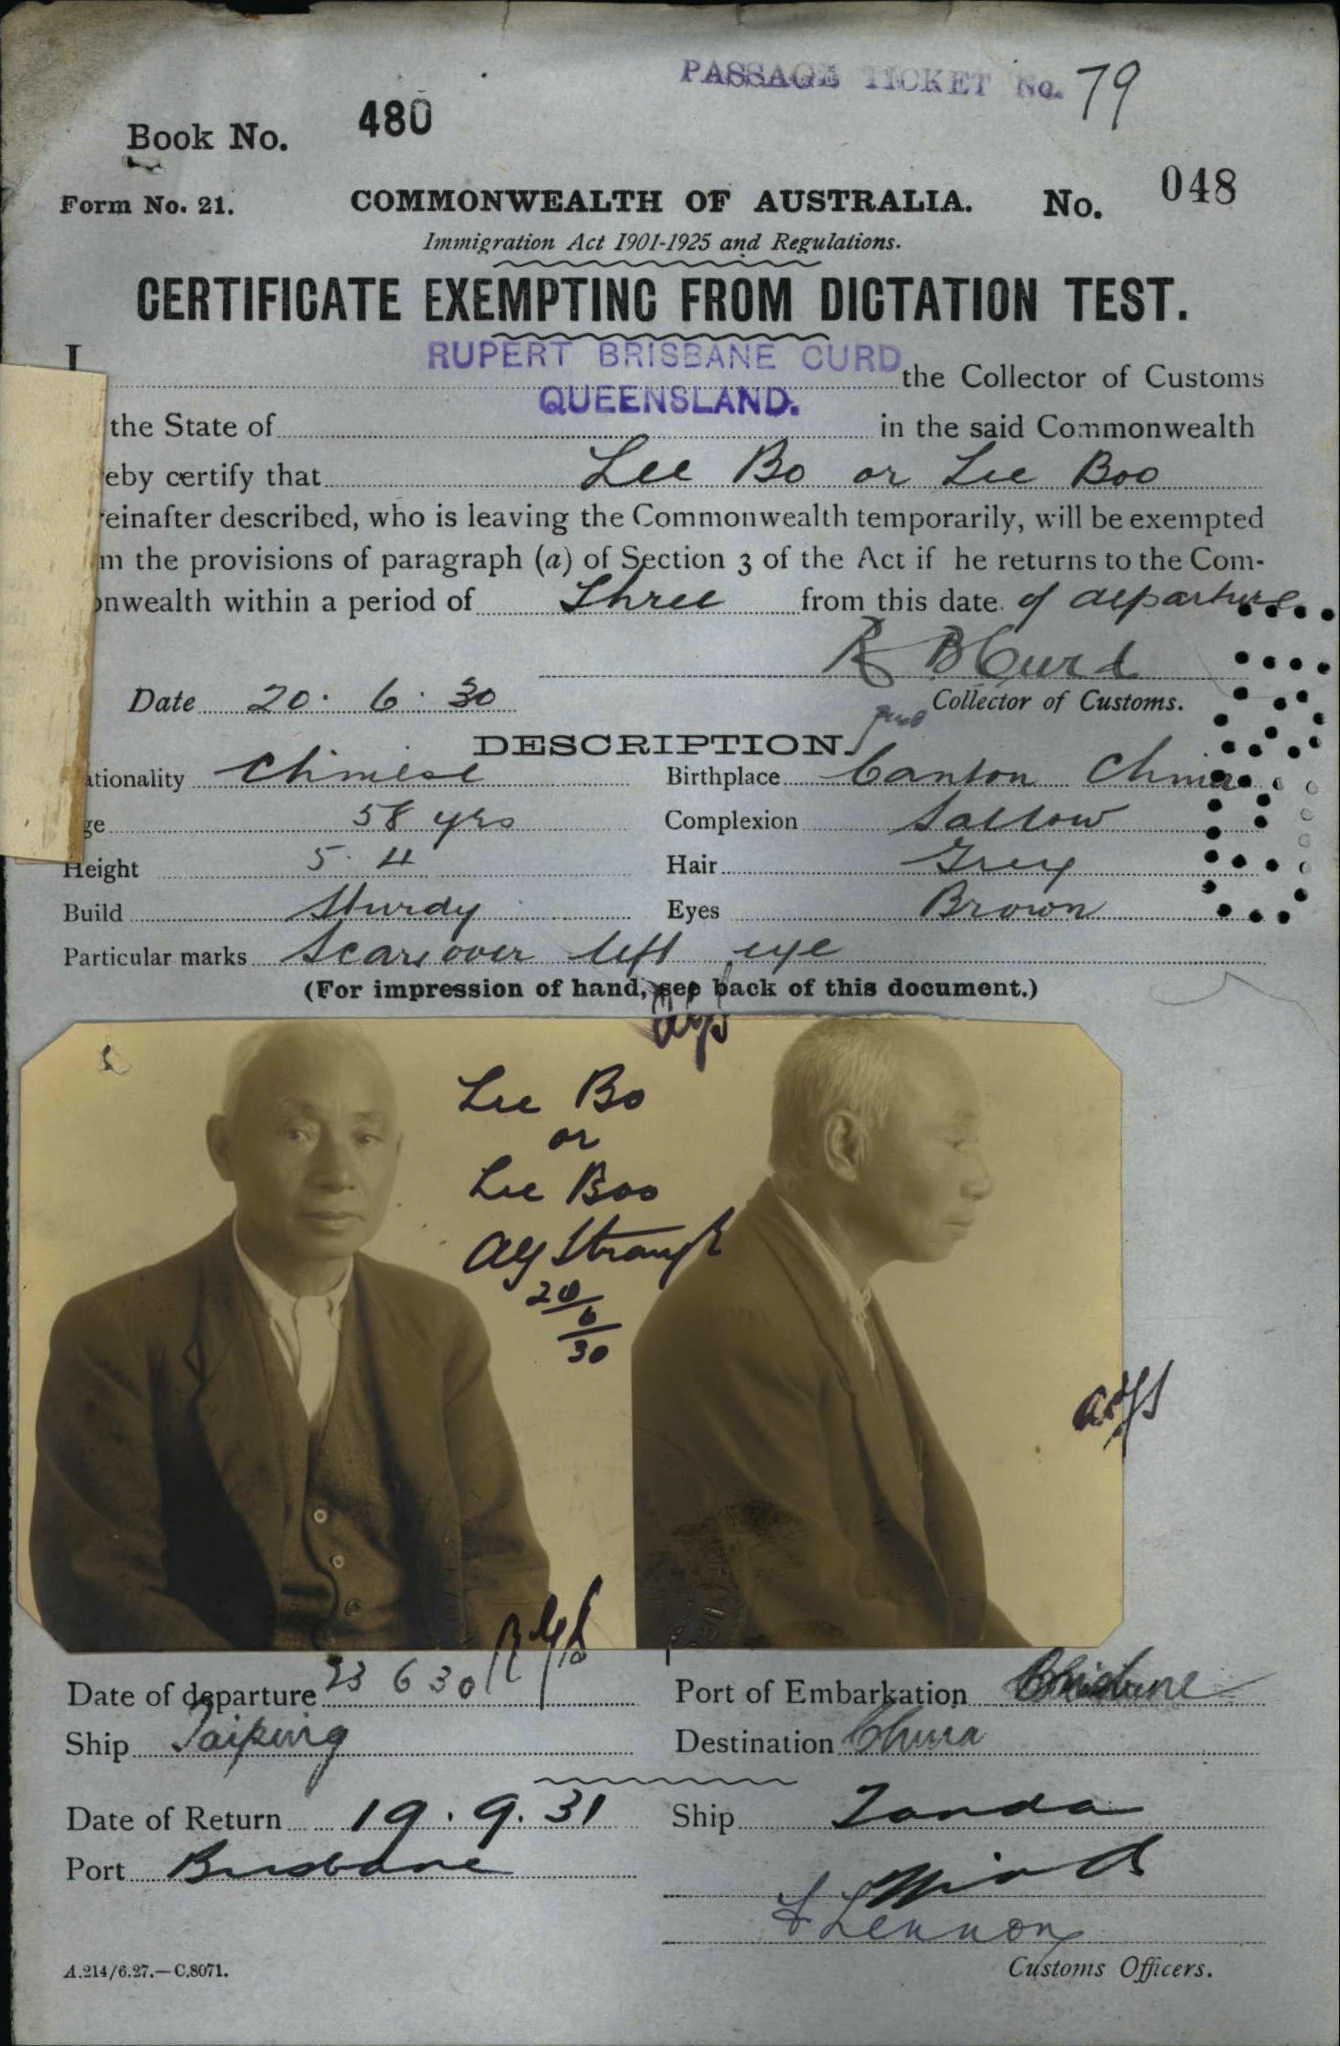 PASSAGE TICKET No. 79
Book No. 480
Form No. 21. COMMONWEALTH OF AUSTRALIA. No. 048
Immigration Act 1901-1925 and Regulations.
CERTIFICATE EXEMPTING FROM DICTATION TEST.
I RUPERT BRISBANE CURD the Collector of Customs
the State of QUEENSLAND. in the said Commonwealth
eby certify that Lee Bo or Lee Boo
einafter described, who is leaving the Commonwealth temporarily, will be exempted
m the provisions of paragraph (a) of Section 3 of the Act if he returns to the Com-
onwealth within a period of Three from this date of departure
R B Curd
Date 20. 6. 30 Collector of Customs.
DESCRIPTION.
ationality Chinese Birthplace Canton China
ge 58 yrs Complexion Sallow
Height 5. 4 Hair Grey
Build Sturdy Eyes Brown
Particular marks Scar over left eye
(For impression of hand, see back of this document.)
Lee Bo
or
Lee Boo
20
6
30
Date of departure 23 6 30 Port of Embarkation Brisbane
Ship Taiping Destination China
Date of Return 19. 9. 31 Ship Tanda
Port Brisbane
Lennon
A.214/6.27.—C.8071. Customs Officers.